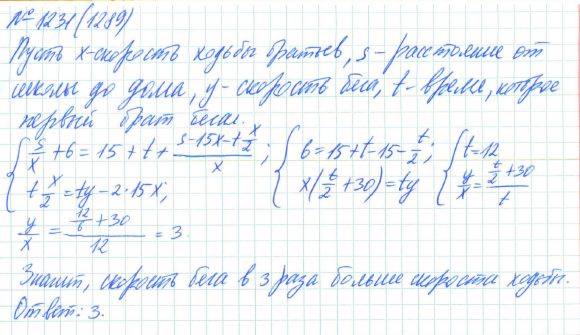 № 1231(1289)
Пусть x-скорость ходьбы братьев, s-расстояние от
школы до дома, y-скорость бега, t-время, которое
первый брат бегал.
{ s/x + 6 = 15 + t + (s-15x-t x/2)/x ; { 6 = 15 + t - 15 - t/2; { t = 12
t x/2 = ty - 2·15x; x(t/2 + 30) = ty y/x = (t/2 + 30)/t
y/x = (12/6 + 30)/12 = 3.
Значит, скорость бега в 3 раза больше скорости ходьбы.
Ответ: 3.